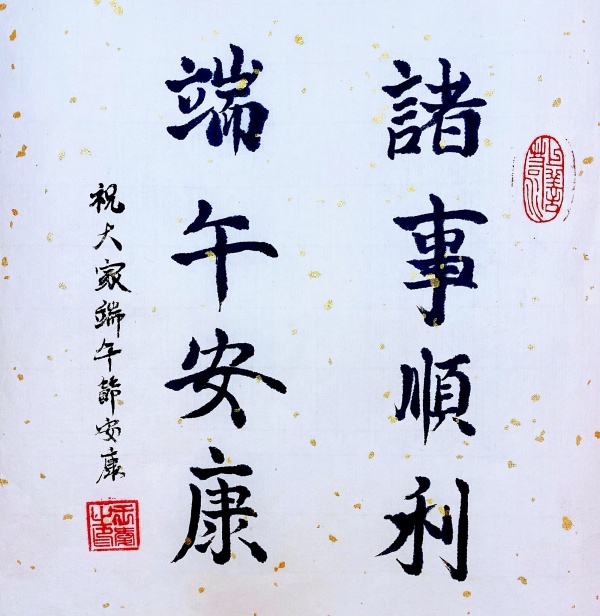 諸事順利
端午安康
祝大家端午節安康